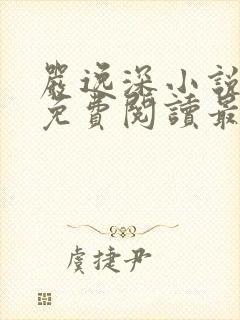 嚴逸深小說
免費閱讀最
虞捷尹